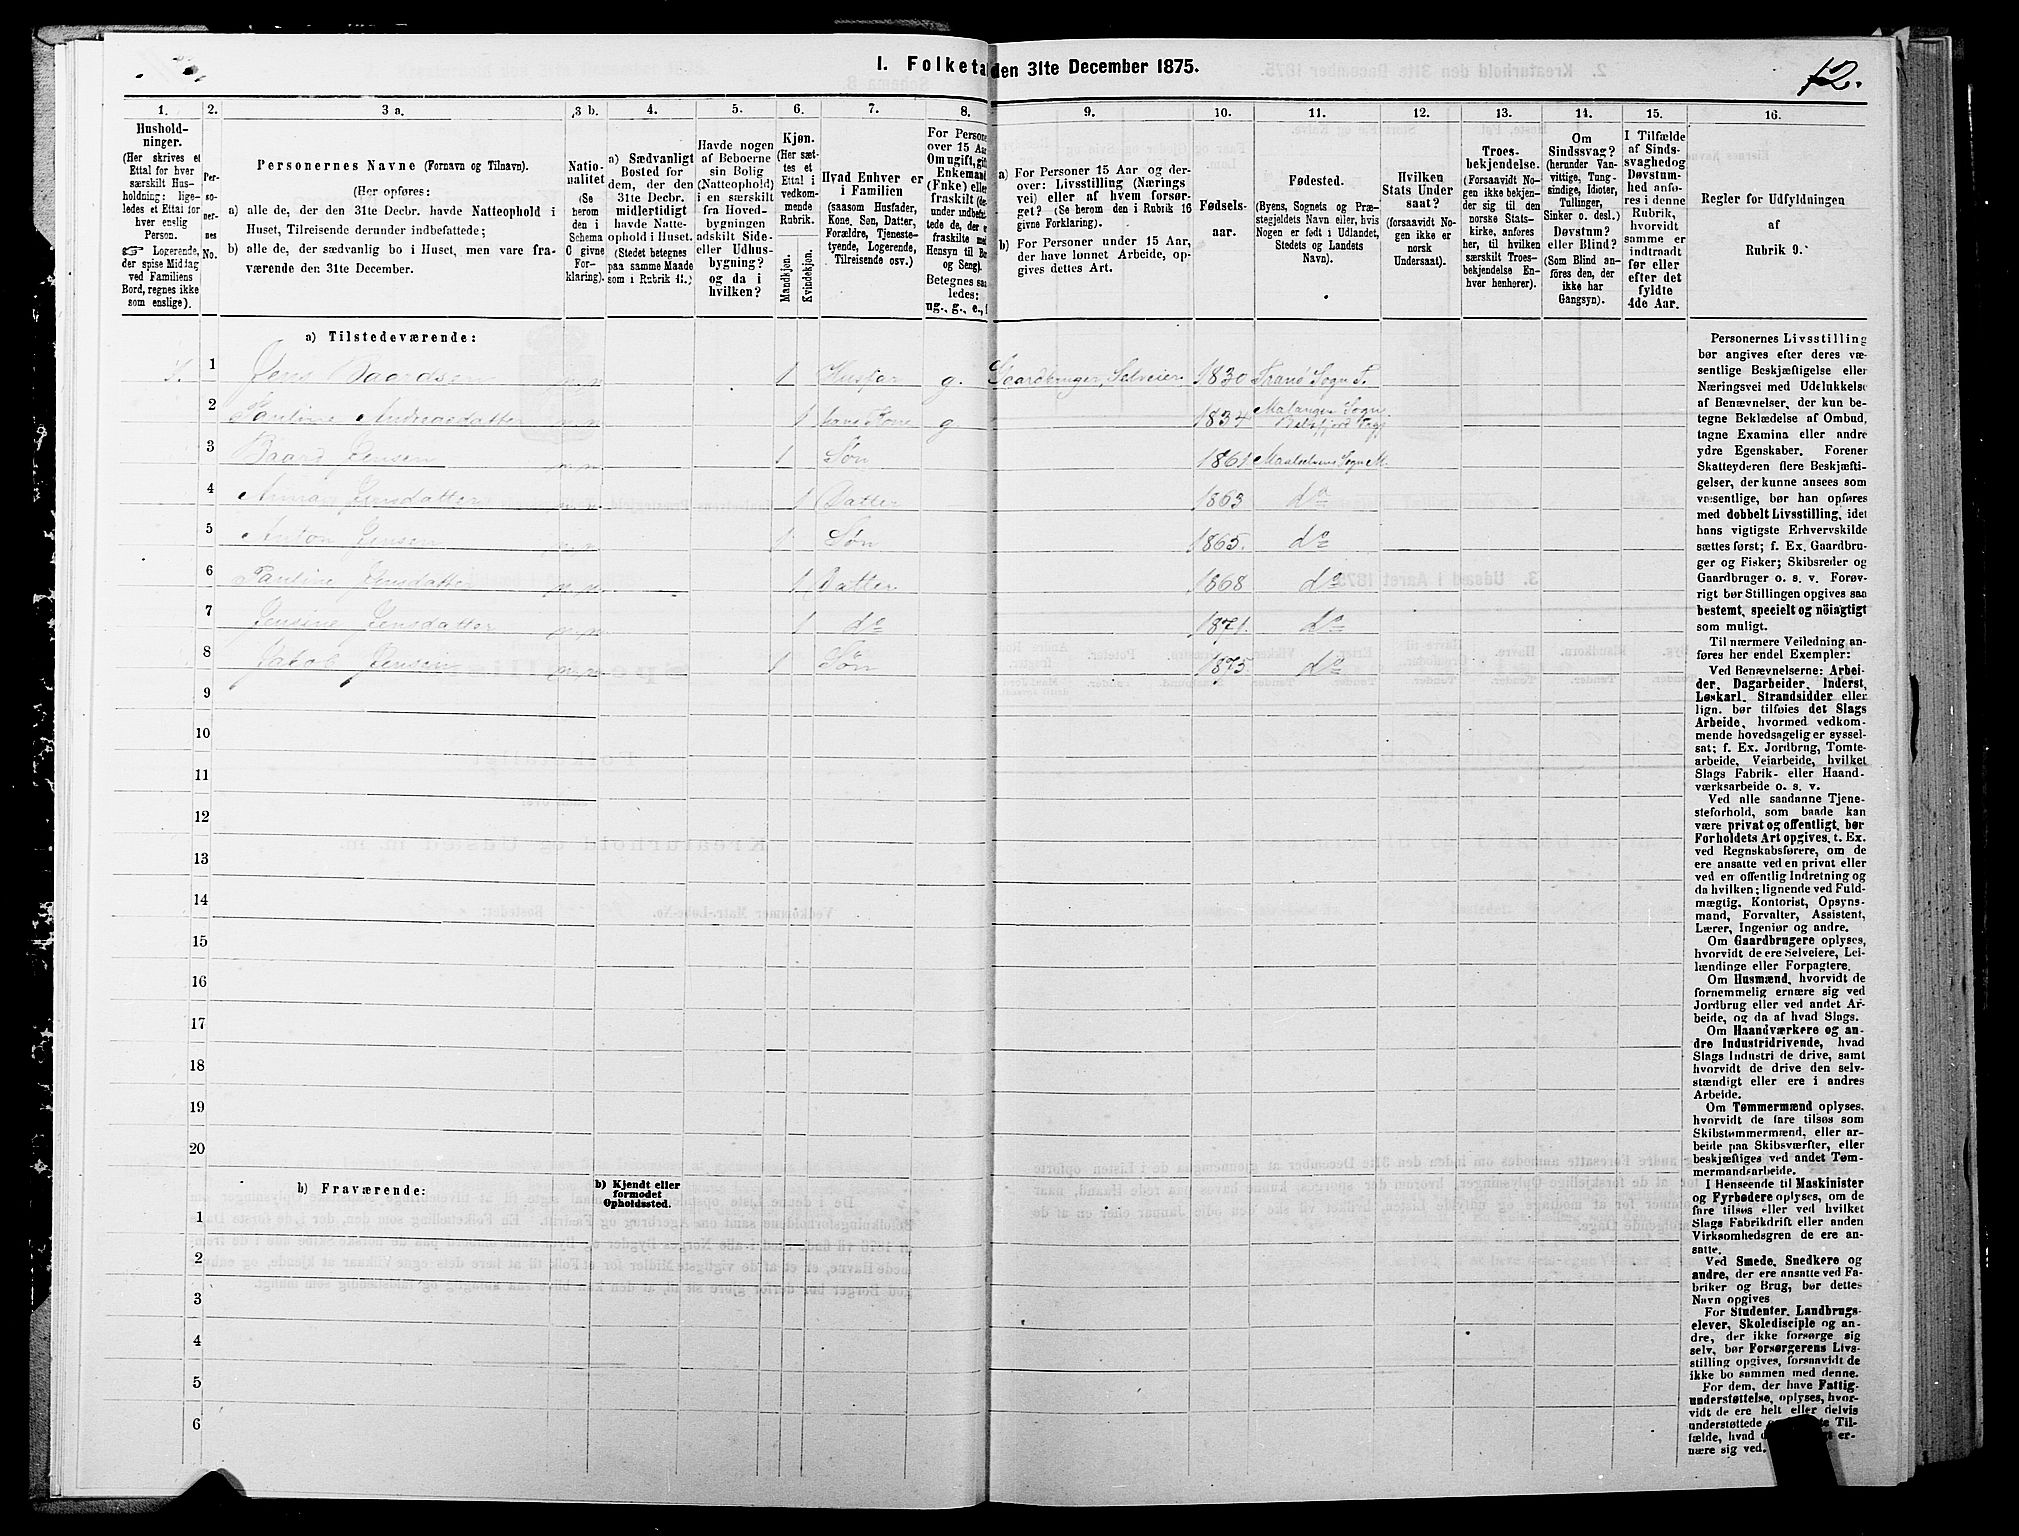 I. Folketæ
den 31te December 1875.
12.
1.
2.
3 a.
3 b.
4.
5.
6.
7.
8.
9.
10.
11.
12.
13.
14.
15.
16.
Hushold-
ninger.
(Her skrives et
Ettal for hver
særskilt Hus-
holdning; lige-
ledes et Ettal for
hver enslig
Person.
☞ Logerende,
der spise Middag
ved Familiens
Bord, regnes ikke
som enslige).
Per-
so-
ner-
nes
No.
Personernes Navne (Fornavn og Tilnavn).
(Her opføres:
a) alle de, der den 31te Decbr. havde Natteophold i
Huset, Tilreisende derunder indbefattede;
b) alle de, der sædvanlig bo i Huset, men vare fra-
værende den 31te December.
Natio-
nalitet
(Se
herom
den i
Schema
C givne
For-
klaring).
a) Sædvanligt
Bosted for
dem, der den
31te Decbr.
midlertidigt
havde Natte-
ophold i Huset.
(Stedet betegnes
paa samme Maade
som i Rubrik 11.)
Havde nogen
af Beboerne
sin Bolig
(Natteophold)
i en særskilt
fra Hoved-
bygningen
adskilt Side-
eller Udhus-
bygning?
og da i
hvilken?
Kjøn.
(Her sæt-
tes et
Ettal i
vedkom-
mende
Rubrik.
Mandkjøn.
Kvindekjøn.
Hvad Enhver er
i Familien
(saasom Husfader,
Kone, Søn, Datter,
Forældre, Tjeneste-
tyende, Logerende,
Tilreisende osv.).
For Persone
over 15 Aa
Om ugift, gift
Enkemand
(Enke) elle
fraskilt (de
under indbefat-
tede de, der e
fraskilte med
Hensyn til Bo
og Seng).
Betegnes saa
ledes:
ug., g., e., f
a) For Personer 15 Aar og der-
over: Livsstilling (Nærings
vei) eller af hvem forsør-
get? (Se herom den i Rubrik 16
givne Forklaring).
b) For Personer under 15 Aar,
der have lønnet Arbeide, op-
gives dettes Art.
Fødsels-
aar.
Fødested.
(Byens, Sognets og Præ-
stegjeldets Navn eller, hvis
Nogen er født i Udlandet,
Stedets og Landets
Navn).
Hvilken
Stats Under
saat?
(forsaavidt No-
gen ikke er
norsk
Undersaat).
Troes-
bekjendelse.
(Forsaavidt No-
gen ikke bekjen-
der sig til den
norske Stats-
kirke, anføres
her, til hvilken
særskilt Troes-
bekjendelse En-
hver henhører).
Om
Sindssvag?
(herunder Van-
vittige, Tung-
sindige, Idioter,
Tullinger,
Sinker o. desl.)
Døvstum?
eller Blind?
(Som Blind an-
føres den, der
ikke har
Gangsyn).
I Tilfælde
af Sinds-
svaghed og
Døvstum-
hed anfø-
res i denne
Rubrik,
hvorvidt
samme er
indtraadt
før eller
efter det
fyldte
4de Aar.
Regler for Udfyldningen
af
Rubrik 9.
a) Tilstedeværende:
1. 1 Jens Baardsen n.n 1 Husfar g. Gaardbruger, Selveier 1830 Tranø Sogn T.
2 Pauline Andreasdatter n.n 1 hans Kone g 1834 Malangen Sogn Balsfjord Prgj
3 Baard Jensen n.n 1 Søn 1861 Maalselvens Sogn M.
4 Anna Jensdatter n.n 1 Datter 1863 do
5 Anton Jensen n.n 1 Søn 1865. do
6 Pauline Jensdatter n.n 1 Datter 1868 do
7 Jensine Jensdatter n.n 1 do 1871. do
8 Jakob Jensen n.n 1 Søn 1875 do
9
10
11
12
13
14
15
16
17
18
19
20
b) Fraværende:
b) Kjendt eller
formodet
Opholdssted.
1
2
3
4
5
6
Personernes Livsstilling
bør angives efter deres væ-
sentlige Beskjæftigelse eller
Næringsvei med Udelukkelse
af Benævnelser, der kun be-
tegne Beklædelse af Ombud,
tagne Examina eller andre
ydre Egenskaber. Forener
Skatteyderen flere Beskjæfti-
gelser, der kunne ansees som
væsentlige, bør han opføres
med dobbelt Livsstilling, idet
hans vigtigste Erhvervskilde
sættes først; f. Ex. Gaardbru-
ger og Fisker; Skibsreder og
Gaardbruger o. s. v. Forøv-
rigt bør Stillingen opgives saa
bestemt, specielt og nöiagtigt
som muligt.
Til nærmere Veiledning an-
føres her endel Exempler:
Ved Benævnelserne: Arbei-
der, Dagarbeider, Inderst,
Løskarl, Strandsidder eller
lign. bør tilføies det Slags
Arbeide, hvormed vedkom-
mende hovedsagelig er syssel-
sat; f. Ex. Jordbrug, Tomte-
arbeide, Veiarbeide, hvilket
Slags Fabrik- eller Haand-
værksarbeide o. s. v.
Ved alle saadanne Tjene-
steforhold, som baade kan
være privat og offentligt, bør
Forholdets Art opgives, t. Ex.
ved Regnskabsførere, om de
ere ansatte ved en privat eller
ved en offentlig Indretning og
da hvilken; lignende ved Fuld-
mægtig, Kontorist, Opsyns-
mand, Forvalter, Assistent,
Lærer, Ingeniør og andre.
Om Gaardbrugere oplyses,
hvorvidt de ere Selveiere, Lei-
lændinge eller Forpagtere.
Om Husmænd, hvorvidt de
fornemmelig ernære sig ved
Jordbrug eller ved andet Ar-
beide, og da af hvad Slags.
Om Haandværkere og an-
dre Industridrivende, hvad
Slags Industri de drive, samt
hvorvidt de drive den selv-
stændigt eller ere i andres
Arbeide.
Om Tømmermænd oplyses,
hvorvidt de fare tilsøs som
Skibstømmermænd, eller ar-
beide paa Skibsværfter, eller
beskjæftiges ved andet Tøm-
mermandsarbeide.
I Henseende til Maskinister
og Fyrbødere oplyses, om de
fare tilsøs eller ved hvilket
Slags Fabrikdrift eller anden
Virksomhedsgren de ere an-
satte.
Ved Smede, Snedkere og
andre, der ere ansatte ved Fa-
briker og Brug, bør dettes
Navn opgives
For Studenter, Landbrugs-
elever, Skoledisciple og an-
dre, der ikke forsørge sig
selv, bør Forsørgerens Livs-
stilling opgives, forsaavidt de
ikke bo sammen med denne.
For dem, der have Fattig-
understøttelse, oplyses, hvor-
vidt de ere helt eller delvis
understøttede
Til-
fælde, hvad
er-
nære sig ved.